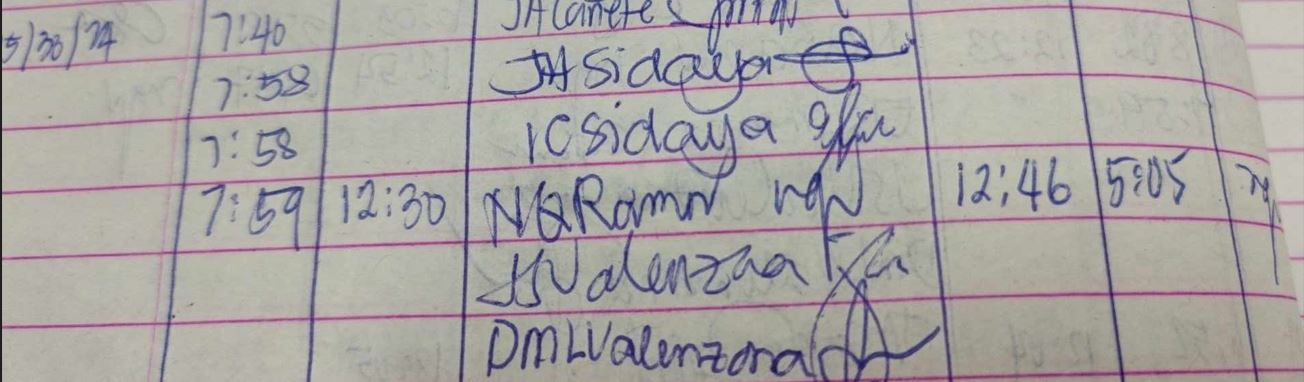 5/30/24 7:40 JACanete
7:58 JASidaya
7:58 ICSidaya
7:59 12:30 NQRamn 12:46 5:05
JSValenzaa
DMLValenzona